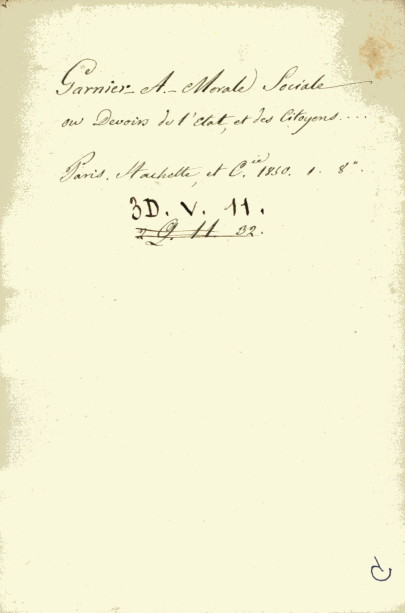 Garnier - A - Morale Sociale
ou Devoirs de l'Etat, et des Citoyens....
Paris. Hachette, et C.ie 1850. 1. 8°.
3D. V. 11.
2 Q. 11 32.